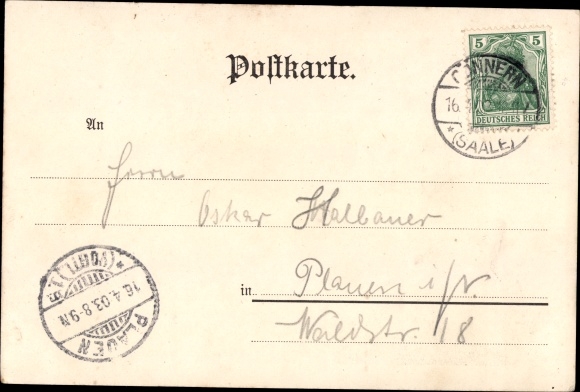 Postkarte.
5 5
DEUTSCHES REICH
CÖNNERN
16.
* (SAALE)
An
Herrn
Oskar Halbauer
in Plauen i/V.
Waldstr. 18
* (VOGTL.) 1. *
16.4.03.8-9N
PLAUEN